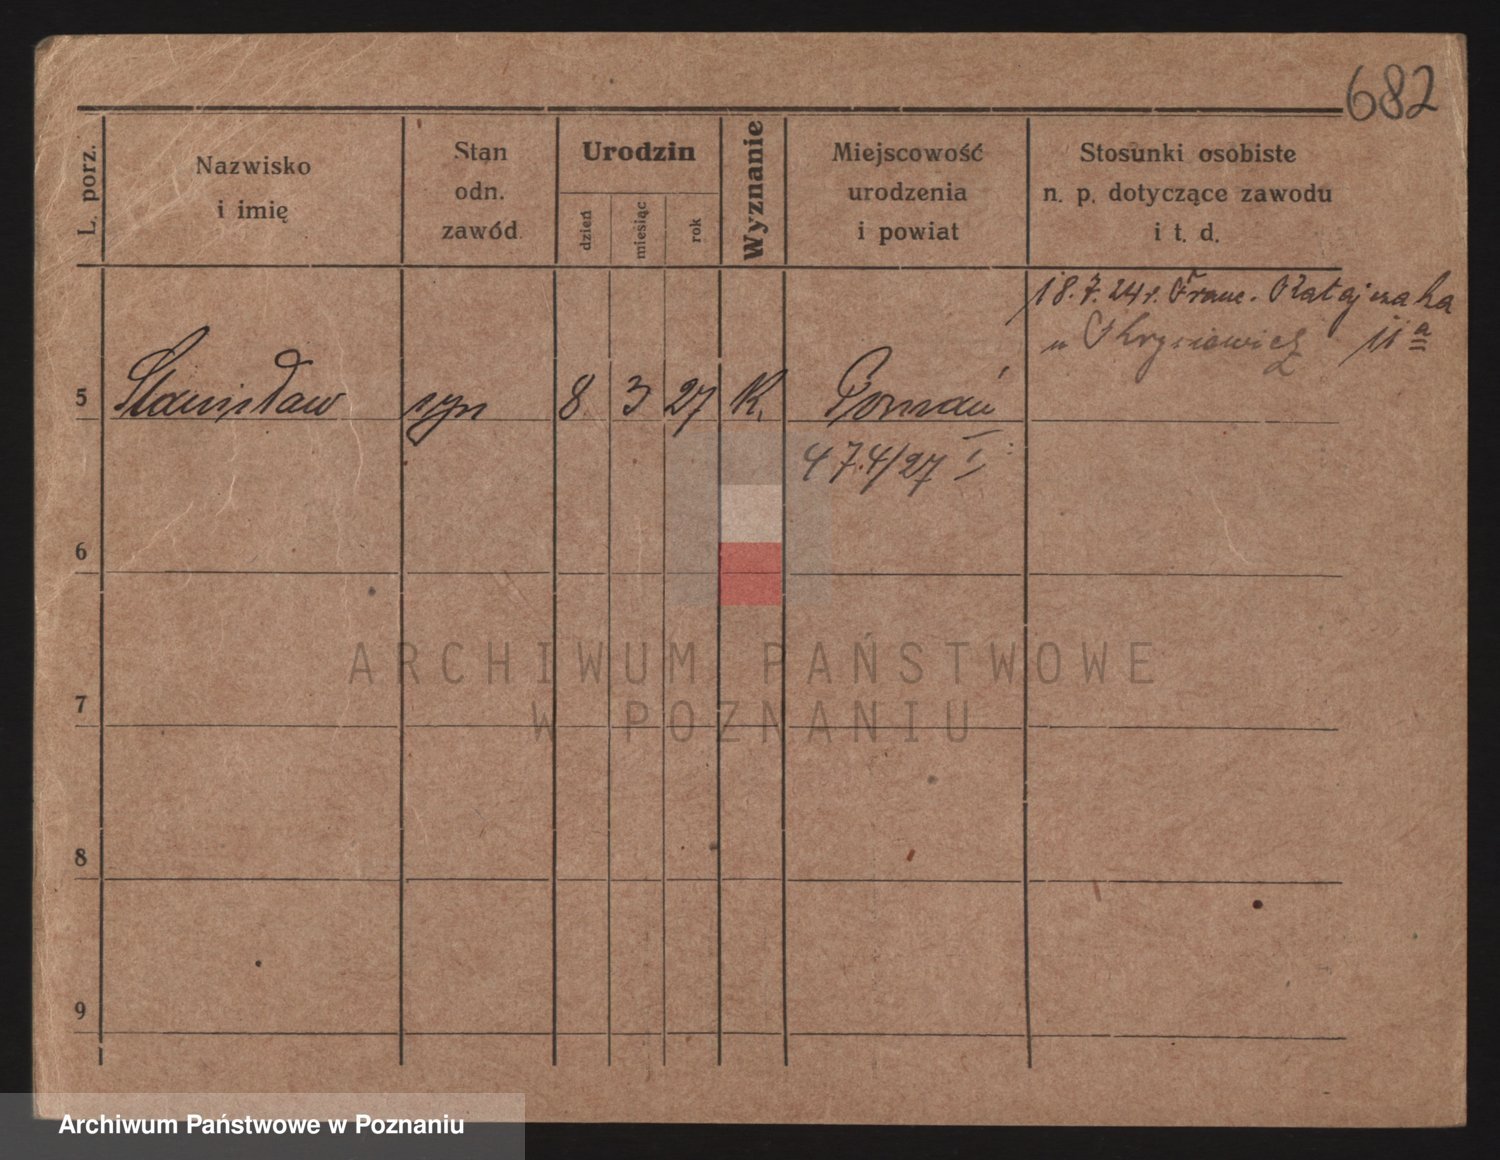 682
L. porz.
Nazwisko
i imię
Stan
odn.
zawód
Urodzin
dzień
miesiąc
rok
Wyznanie
Miejscowość
urodzenia
i powiat
Stosunki osobiste
n. p. dotyczące zawodu
i t. d.
18.7.24 r. Franc. Ratajczaka
u 11 a
5 Stanisław syn 8 3 27 K. Poznań
474/27 I
6
7
8
9
ARCHIWUM PAŃSTWOWE
W POZNANIU
Archiwum Państwowe w Poznaniu